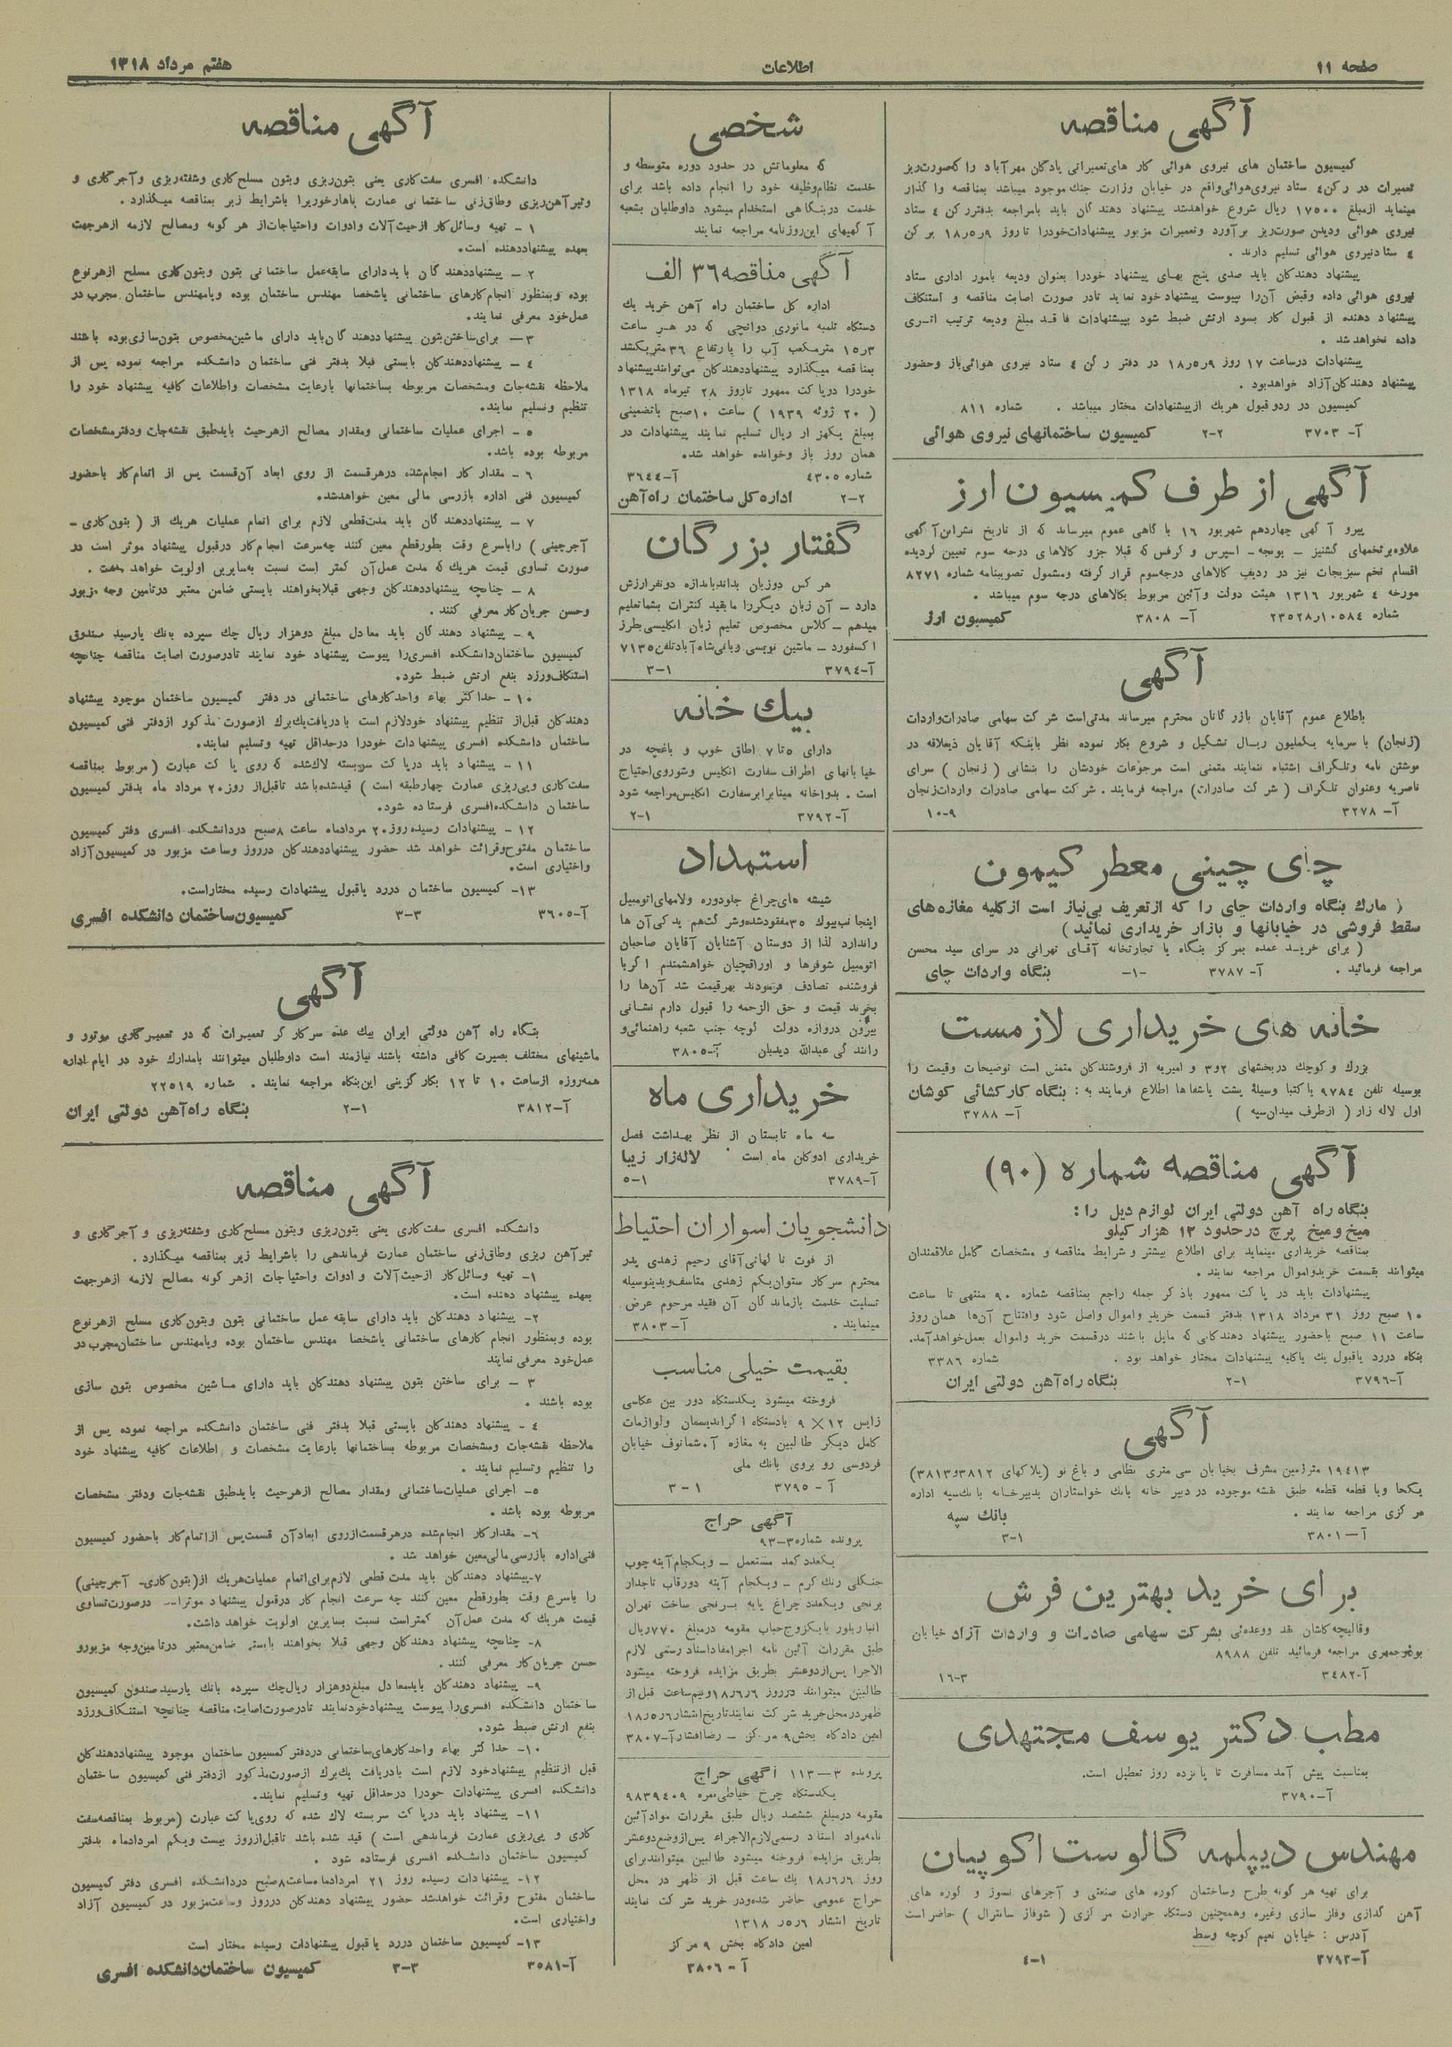 صفحه ۱۱
اطلاعات
هفتم مرداد ۱۳۱۸
آگهی مناقصه
کمیسیون ساختمان های نیروی هوائی کار های تعمیراتی پادگان مهرآباد را که صورت ریز
تعمیرات در رکن ٤ ستاد نیروی هوائی واقع در خیابان وزارت جنگ موجود میباشد بمناقصه واگذار
مینماید از مبلغ ۱۷۵۰۰ ریال شروع خواهد شد پیشنهاد دهندگان باید بامراجعه بدفتر رکن ٤ ستاد
نیروی هوائی ودیدن صورت ریز برآورد وتعمیرات مزبور پیشنهادات خودرا تا روز ۹ر۵ر۱۸ برکن
٤ ستاد نیروی هوائی تسلیم دارند .
پیشنهاد دهندگان باید صدی پنج بهای پیشنهاد خودرا بعنوان ودیعه بامور اداری ستاد
نیروی هوائی داده وقبض آن را پیوست پیشنهاد خود نماید تادر صورت اصابت مناقصه و استنکاف
پیشنهاد دهنده از قبول کار بسود ارتش ضبط شود بپیشنهادات فاقد مبلغ ودیعه ترتیب اثری
داده نخواهد شد .
پیشنهادات درساعت ۱۷ روز ۹ر۵ر۱۸ در دفتر رکن ٤ ستاد نیروی هوائی باز وحضور
پیشنهاد دهندگان آزاد خواهد بود .
کمیسیون در رد و قبول هریک از پیشنهادات مختار میباشد . شماره ۸۱۱
آ- ۳۷۰۳ ۲-۲ کمیسیون ساختمانهای نیروی هوائی
آگهی از طرف کمیسیون ارز
پیرو آگهی چهاردهم شهریور ۱٦ با گاهی عموم میرساند که از تاریخ نشر این آگهی
علاوه بر تخمهای گشنیز - یونجه - اسپرس و کرفس که قبلا جزو کالاهای درجه سوم تعیین گردیده
اقسام تخم سبزیجات نیز در ردیف کالاهای درجه سوم قرار گرفته ومشمول تصویبنامه شماره ۸۲۷۱
مورخه ٤ شهریور ۱۳۱٦ هیئت دولت وآئین مربوط بکالاهای درجه سوم میباشد .
شماره ۱۰۵۸٤ر۲۳۵۲۸ آ- ۳۸۰۸ کمیسیون ارز
آگهی
باطلاع عموم آقایان بازرگانان محترم میرساند مدتی است شرکت سهامی صادرات واردات
(زنجان) با سرمایه یکملیون ریال تشکیل و شروع بکار نموده نظر باینکه آقایان ذیعلاقه در
نوشتن نامه وتلگراف اشتباه ننمایند متمنی است مرجوعات خودشان را بنشانی ( زنجان ) سرای
ناصریه وعنوان تلگراف ( شرکت صادرات) مراجعه فرمایند . شرکت سهامی صادرات واردات زنجان
آ- ۳۲۷۸ ۹-۱۰
چای چینی معطر کیمون
( مارک بنگاه واردات چای را که از تعریف بی نیاز است از کلیه مغازه های
سقط فروشی در خیابانها و بازار خریداری نمائید )
( برای خرید عمده بمرکز بنگاه یا تجارتخانه آقای تهرانی در سرای سید محسن
مراجعه فرمائید . آ- ۳۷۸۷ -۱- بنگاه واردات چای
خانه های خریداری لازمست
بزرک و کوچک دربخشهای ۲و۳ و امیریه از فروشندگان متمنی است توضیحات وقیمت را
بوسیله تلفن ۹۷۸٤ یا کتبا وسیلهٔ پست یاشفاها اطلاع فرمایند به : بنگاه کارگشائی کوشان
اول لاله زار ( از طرف میدان سپه ) آ- ۳۷۸۸
آگهی مناقصه شماره (۹۰)
بنگاه راه آهن دولتی ایران لوازم ذیل را :
میخ و میخ پرچ درحدود ۱۲ هزار کیلو
بمناقصه خریداری مینماید برای اطلاع بیشتر و شرایط مناقصه و مشخصات کامل علاقمندان
میتوانند بقسمت خرید واموال مراجعه نمایند .
پیشنهادات باید در پاکت ممهور باذکر جمله راجع بمناقصه شماره ۹۰ منتهی تا ساعت
۱۰ صبح روز ۳۱ مرداد ۱۳۱۸ بدفتر قسمت خرید واموال واصل شود وافتتاح آن ها همان روز
ساعت ۱۱ صبح باحضور پیشنهاد دهندگانی که مایل باشند درقسمت خرید واموال بعمل خواهد آمد.
بنگاه دررد یاقبول یک یاکلیه پیشنهادات مختار خواهد بود . شماره ۳۳۸٦
آ-۳۷۹٦ ۱-۲ بنگاه راه آهن دولتی ایران
آگهی
۱۹٤۱۳ متر زمین مشرف بخیابان سی متری نظامی و باغ نو (پلاکهای ۳۸۱۲و۳۸۱۳)
یکجا ویا قطعه قطعه طبق نقشه موجوده در دبیر خانه بانک خواستاران بدبیرخانه بانک سپه اداره
مرکزی مراجعه نمایند . بانک سپه
آ—۳۸۰۱ ۱-۳
برای خرید بهترین فرش
وقالیچه کاشان نقد ووعدهئی بشرکت سهامی صادرات و واردات آزاد خیابان
بوذرجمهری مراجعه فرمائید تلفن ۸۹۸۸
آ-۳٤۸۲ ۳-۱٦
مطب دکتر یوسف مجتهدی
بمناسبت پیش آمد مسافرت تا پانزده روز تعطیل است.
آ-۳۷۹۰
مهندس دیپلمه گالوست اکوپیان
برای تهیه هر گونه طرح وساختمان کوره های صنعتی و آجرهای نسوز و کوره های
آهن گدازی وفلز سازی وغیره وهمچنین دستگاه حرارت مرکزی ( شوفاژ سانترال ) حاضر است
آدرس : خیابان نعیم کوچه وسط
آ-۳۷۹۳ ۱-٤
شخصی
که معلوماتش در حدود دوره متوسطه و
خدمت نظام وظیفه خود را انجام داده باشد برای
خدمت دربنگاهی استخدام میشود داوطلبان بشعبه
آگهیهای این روزنامه مراجعه نمایند
آگهی مناقصه ۳٦ الف
اداره کل ساختمان راه آهن خرید یک
دستگاه تلمبه مانوری دوانچی که در هر ساعت
۳ر۱۵ مترمکعب آب را بارتفاع ۳٦ متر بکشد
بمناقصه میگذارد پیشنهاد دهندگان می توانند پیشنهاد
خودرا درپاکت ممهور تاروز ۲۸ تیرماه ۱۳۱۸
( ۲۰ ژوئیه ۱۹۳۹ ) ساعت ۱۰صبح باتضمینی
بمبلغ یکهزار ریال تسلیم نمایند پیشنهادات در
همان روز باز وخوانده خواهد شد.
شماره ٤۳۰۵ آ-۳٦٤٤
۲-۲ اداره کل ساختمان راه آهن
گفتار بزرگان
هر کس دوزبان بداند باندازه دونفر ارزش
دارد - آن زبان دیگر را مابقید کنترات بشما تعلیم
میدهم - کلاس مخصوص تعلیم زبان انگلیسی بطرز
اکسفورد - ماشین نویسی و بانی شاه آباد تلفن ۷۱۳۵
آ-۳۷۹٤ ۱-۳
بیک خانه
دارای ۵تا ۷ اطاق خوب و باغچه در
خیابانهای اطراف سفارت انگلیس وشوروی احتیاج
است . بدواخانه مینا برابر سفارت انگلیس مراجعه شود
آ-۳۷۹۲ ۱-۲
استمداد
شیشه های چراغ جلودوره ولامهای اتومبیل
اینجانب بیوک ۳۵ مفقود شده وشرکت هم یدکی آن ها
راندارد لذا از دوستان آشنایان آقایان صاحبان
اتومبیل شوفرها و اوراقچیان خواهشمندم اگر با
فروشنده تصادف فرمودند بهرقیمت شد آن ها را
بخرند قیمت و حق الزحمه را قبول دارم نشانی
بیرون دروازه دولت کوچه جنب شعبه راهنمائی و
رانندگی عبدالله دیدبان آ-۳۸۰۵
خریداری ماه
سه ماه تابستان از نظر بهداشت فصل
خریداری ادوکلن ماه است لاله زار زیبا
آ-۳۷۸۹ ۱-۵
دانشجویان اسواران احتیاط
از فوت ناگهانی آقای رحیم زهدی پدر
محترم سرکار ستوان یکم زهدی متاسف وبدینوسیله
تسلیت خدمت بازماندگان آن فقید مرحوم عرض
مینمایند . آ-۳۸۰۳
بقیمت خیلی مناسب
فروخته میشود یکدستگاه دوربین عکاسی
زایس ۱۲×۹ بادستگاه اگراندیسمان ولوازمات
کامل دیگر طالبین به مغازه آ.شمانوف خیابان
فردوسی رو بروی بانک ملی
آ - ۳۷۹۵ ۱-۳
آگهی حراج
پرونده شماره۳-۹۳
یکعدد کمد مستعمل - ویکجام آینه چوب
جنگلی رنک کرم - ویکجام آینه دورقاب تاجدار
برنجی ویکعدد چراغ پایه برنجی ساخت تهران
انبار بلور بایکزوج حباب مقومه درمبلغ ۷۷۰ریال
طبق مقررات آئین نامه اجرامفاداسناد رسمی لازم
الاجرا پس ازدوعشر بطریق مزایده فروخته میشود
طالبین میتوانند درروز ٦ر٦ر۱۸ونیم ساعت قبل از
ظهر درمحل خرید شرکت نمایند تاریخ انتشار ٦ر۵ر۱۸
امین دادگاه بخش ۹ مرکز - رضا افشار آ-۳۸۰۷
پرونده ۳—۱۱۳ آگهی حراج
یکدستگاه چرخ خیاطی نمره ۹۸۳۹٤۰۹
مقومه درمبلغ ششصد ریال طبق مقررات مواد آئین
نامه مواد اسناد رسمی لازم الاجراء پس از وضع دوعشر
بطریق مزایده فروخته میشود طالبین میتوانند برای
روز ٦ر٦ر۱۸ یک ساعت قبل از ظهر در محل
حراج عمومی حاضر شده ودر خرید شرکت نمایند
تاریخ انتشار ٦ر۵ر ۱۳۱۸
امین دادگاه بخش ۹ مرکز
آ - ۳۸۰٦
آگهی مناقصه
دانشکده افسری سفت کاری یعنی بتون ریزی وبتون مسلح کاری وشفته ریزی و آجرکاری و
وتیرآهن ریزی وطاق زنی ساختمانی عمارت پاهارخوریرا باشرایط زیر بمناقصه میگذارد.
۱ - تهیه وسائل کار از حیث آلات وادوات واحتیاجات از هر گونه ومصالح لازمه از هرجهت
بعهده پیشنهاد دهنده است.
۲ - پیشنهاد دهندگان باید دارای سابقه عمل ساختمانی بتون وبتون کاری مسلح ازهرنوع
بوده وبمنظور انجام کارهای ساختمانی یاشخصا مهندس ساختمان بوده ویا مهندس ساختمان مجرب در
عمل خود معرفی نمایند.
۳— برای ساختن بتون پیشنهاد دهندگان باید دارای ماشین مخصوص بتون سازی بوده باشند
٤ - پیشنهاد دهندگان بایستی قبلا بدفتر فنی ساختمان دانشکده مراجعه نموده پس از
ملاحظه نقشه جات ومشخصات مربوطه بساختمانها بارعایت مشخصات واطلاعات کافیه پیشنهاد خود را
تنظیم وتسلیم نمایند.
۵ - اجرای عملیات ساختمانی ومقدار مصالح ازهرحیث باید طبق نقشه جات ودفتر مشخصات
مربوطه بوده باشد.
٦ - مقدار کار انجام شده درهرقسمت از روی ابعاد آن قسمت پس از اتمام کار باحضور
کمیسیون فنی اداره بازرسی مالی معین خواهد شد.
۷ - پیشنهاد دهندگان باید مدت قطعی لازم برای اتمام عملیات هریک از ( بتون کاری -
آجرچینی ) را باسرع وقت بطور قطع معین کنند چه سرعت انجام کار درقبول پیشنهاد موثر است در
صورت تساوی قیمت هریک که مدت عمل آن کمتر است نسبت به سایرین اولویت خواهد داشت .
۸ - چنانچه پیشنهاد دهندگان وجهی قبلا بخواهند بایستی ضامن معتبر درتامین وجه مزبور
وحسن جریان کار معرفی کنند .
۹ - پیشنهاد دهندگان باید معادل مبلغ دوهزار ریال چک سپرده بانک یا رسید صندوق
کمیسیون ساختمان دانشکده افسری را پیوست پیشنهاد خود نمایند تادرصورت اصابت مناقصه چنانچه
استنکاف ورزد بنفع ارتش ضبط شود.
۱۰ - حداکثر بهاء واحد کارهای ساختمانی در دفتر کمیسیون ساختمان موجود پیشنهاد
دهندگان قبل از تنظیم پیشنهاد خود لازم است با دریافت یک برک از صورت مذکور از دفتر فنی کمیسیون
ساختمان دانشکده افسری پیشنهادات خودرا درحداقل تهیه وتسلیم نمایند.
۱۱ - پیشنهاد باید درپاکت سربسته لاک شده که روی پاکت عبارت ( مربوط بمناقصه
سفت کاری وپی ریزی عمارت چهارطبقه است ) قید شده باشد تاقبل از روز ۲۰ مرداد ماه بدفتر کمیسیون
ساختمان دانشکده افسری فرستاده شود.
۱۲ - پیشنهادات رسیده روز ۲۰ مردادماه ساعت ۸ صبح دردانشکده افسری دفتر کمیسیون
ساختمان مفتوح وقرائت خواهد شد حضور پیشنهاد دهندگان درروز وساعت مزبور در کمیسیون آزاد
واختیاری است.
۱۳- کمیسیون ساختمان دررد یاقبول پیشنهادات رسیده مختار است.
آ-۳٦۰۵ ۳-۳ کمیسیون ساختمان دانشکده افسری
آگهی
بنگاه راه آهن دولتی ایران بیک عده سرکارگر تعمیرات که در تعمیرگاری موتور و
ماشینهای مختلف بصیرت کافی داشته باشند نیازمند است داوطلبان میتوانند بامدارک خود در ایام اداره
همه روزه از ساعت ۱۰ تا ۱۲ بکارگزینی این بنگاه مراجعه نمایند . شماره ۲۲۵۱۹
آ-۳۸۱۲ ۱-۲ بنگاه راه آهن دولتی ایران
آگهی مناقصه
دانشکده افسری سفت کاری یعنی بتون ریزی وبتون مسلح کاری وشفته ریزی و آجرکاری و
تیرآهن ریزی وطاق زنی ساختمان عمارت فرماندهی را باشرایط زیر بمناقصه میگذارد.
۱- تهیه وسائل کار از حیث آلات و ادوات واحتیاجات از هر گونه مصالح لازمه از هرجهت
بعهده پیشنهاد دهنده است.
۲- پیشنهاد دهندگان باید دارای سابقه عمل ساختمانی بتون وبتون کاری مسلح ازهرنوع
بوده وبمنظور انجام کارهای ساختمانی یاشخصا مهندس ساختمان بوده ویامهندس ساختمان مجرب در
عمل خود معرفی نمایند
۳ - برای ساختن بتون پیشنهاد دهندگان باید دارای ماشین مخصوص بتون سازی
بوده باشند .
٤ - پیشنهاد دهندگان بایستی قبلا بدفتر فنی ساختمان دانشکده مراجعه نموده پس از
ملاحظه نقشه جات ومشخصات مربوطه بساختمانها بارعایت مشخصات و اطلاعات کافیه پیشنهاد خود
را تنظیم وتسلیم نمایند .
۵- اجرای عملیات ساختمانی ومقدار مصالح ازهرحیث باید طبق نقشه جات ودفتر مشخصات
مربوطه بوده باشد .
٦- مقدار کار انجام شده درهرقسمت ازروی ابعاد آن قسمت پس از اتمام کار باحضور کمیسیون
فنی اداره بازرسی مالی معین خواهد شد .
۷-پیشنهاد دهندگان باید مدت قطعی لازم برای اتمام عملیات هریک از(بتون کاری- آجرچینی)
را باسرع وقت بطورقطع معین کنند چه سرعت انجام کار درقبول پیشنهاد موثر است درصورت تساوی
قیمت هریک که مدت عمل آن کمتر است نسبت بسایرین اولویت خواهد داشت.
۸- چنانچه پیشنهاد دهندگان وجهی قبلا بخواهند بایستی ضامن معتبر درتامین وجه مزبورو
حسن جریان کار معرفی کنند .
۹- پیشنهاد دهندگان باید معادل مبلغ دوهزار ریال چک سپرده بانک یارسید صندوق کمیسیون
ساختمان دانشکده افسری را پیوست پیشنهاد خود نمایند تادرصورت اصابت مناقصه چنانچه استنکاف ورزد
بنفع ارتش ضبط شود.
۱۰- حداکثر بهاء واحد کارهای ساختمانی دردفتر کمسیون ساختمان موجود پیشنهاد دهندگان
قبل از تنظیم پیشنهاد خود لازم است بادریافت یک برک ازصورت مذکور ازدفتر فنی کمیسیون ساختمان
دانشکده افسری پیشنهادات خودرا درحداقل تهیه وتسلیم نمایند.
۱۱- پیشنهاد باید درپاکت سربسته لاک شده که روی پاکت عبارت (مربوط بمناقصه سفت
کاری و پی ریزی عمارت فرماندهی است ) قید شده باشد تاقبل از روز بیست ویکم امردادماه بدفتر
کمیسیون ساختمان دانشکده افسری فرستاده شود .
۱۲- پیشنهادات رسیده روز ۲۱ امردادماه ساعت ۸صبح دردانشکده افسری دفتر کمیسیون
ساختمان مفتوح وقرائت خواهد شد حضور پیشنهاد دهندگان درروز وساعت مزبور در کمیسیون آزاد
واختیاری است.
۱۳- کمیسیون ساختمان دررد یاقبول پیشنهادات رسیده مختار است
آ-۳۵۸۱ ۳-۳ کمیسیون ساختمان دانشکده افسری